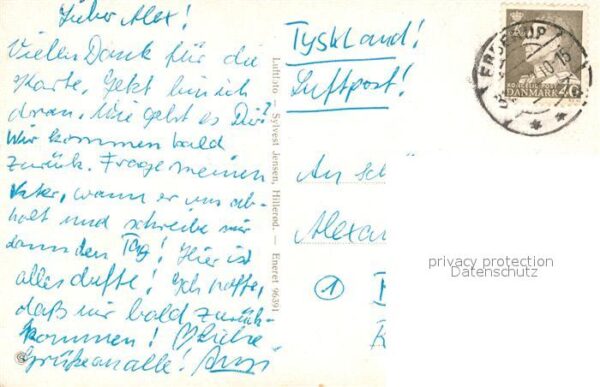 Lieber Alex!
Vielen Dank für die
Karte. Jetzt bin ich
dran. Wie geht es Dir?
Wir kommen bald
zurück. Frage meinen
Vater, wann er uns ab-
holt und schreibe mir
dann den Tag! Hier ist
alles dufte! Ich hoffe,
daß wir bald zurück-
kommen! Liebe
Grüße an alle!
Luftfoto - Sylvest Jensen, Hillerød. — Eneret 96391
Tyskland!
Luftpost!
An
Alexan
1
DANMARK
privacy protection
Datenschutz